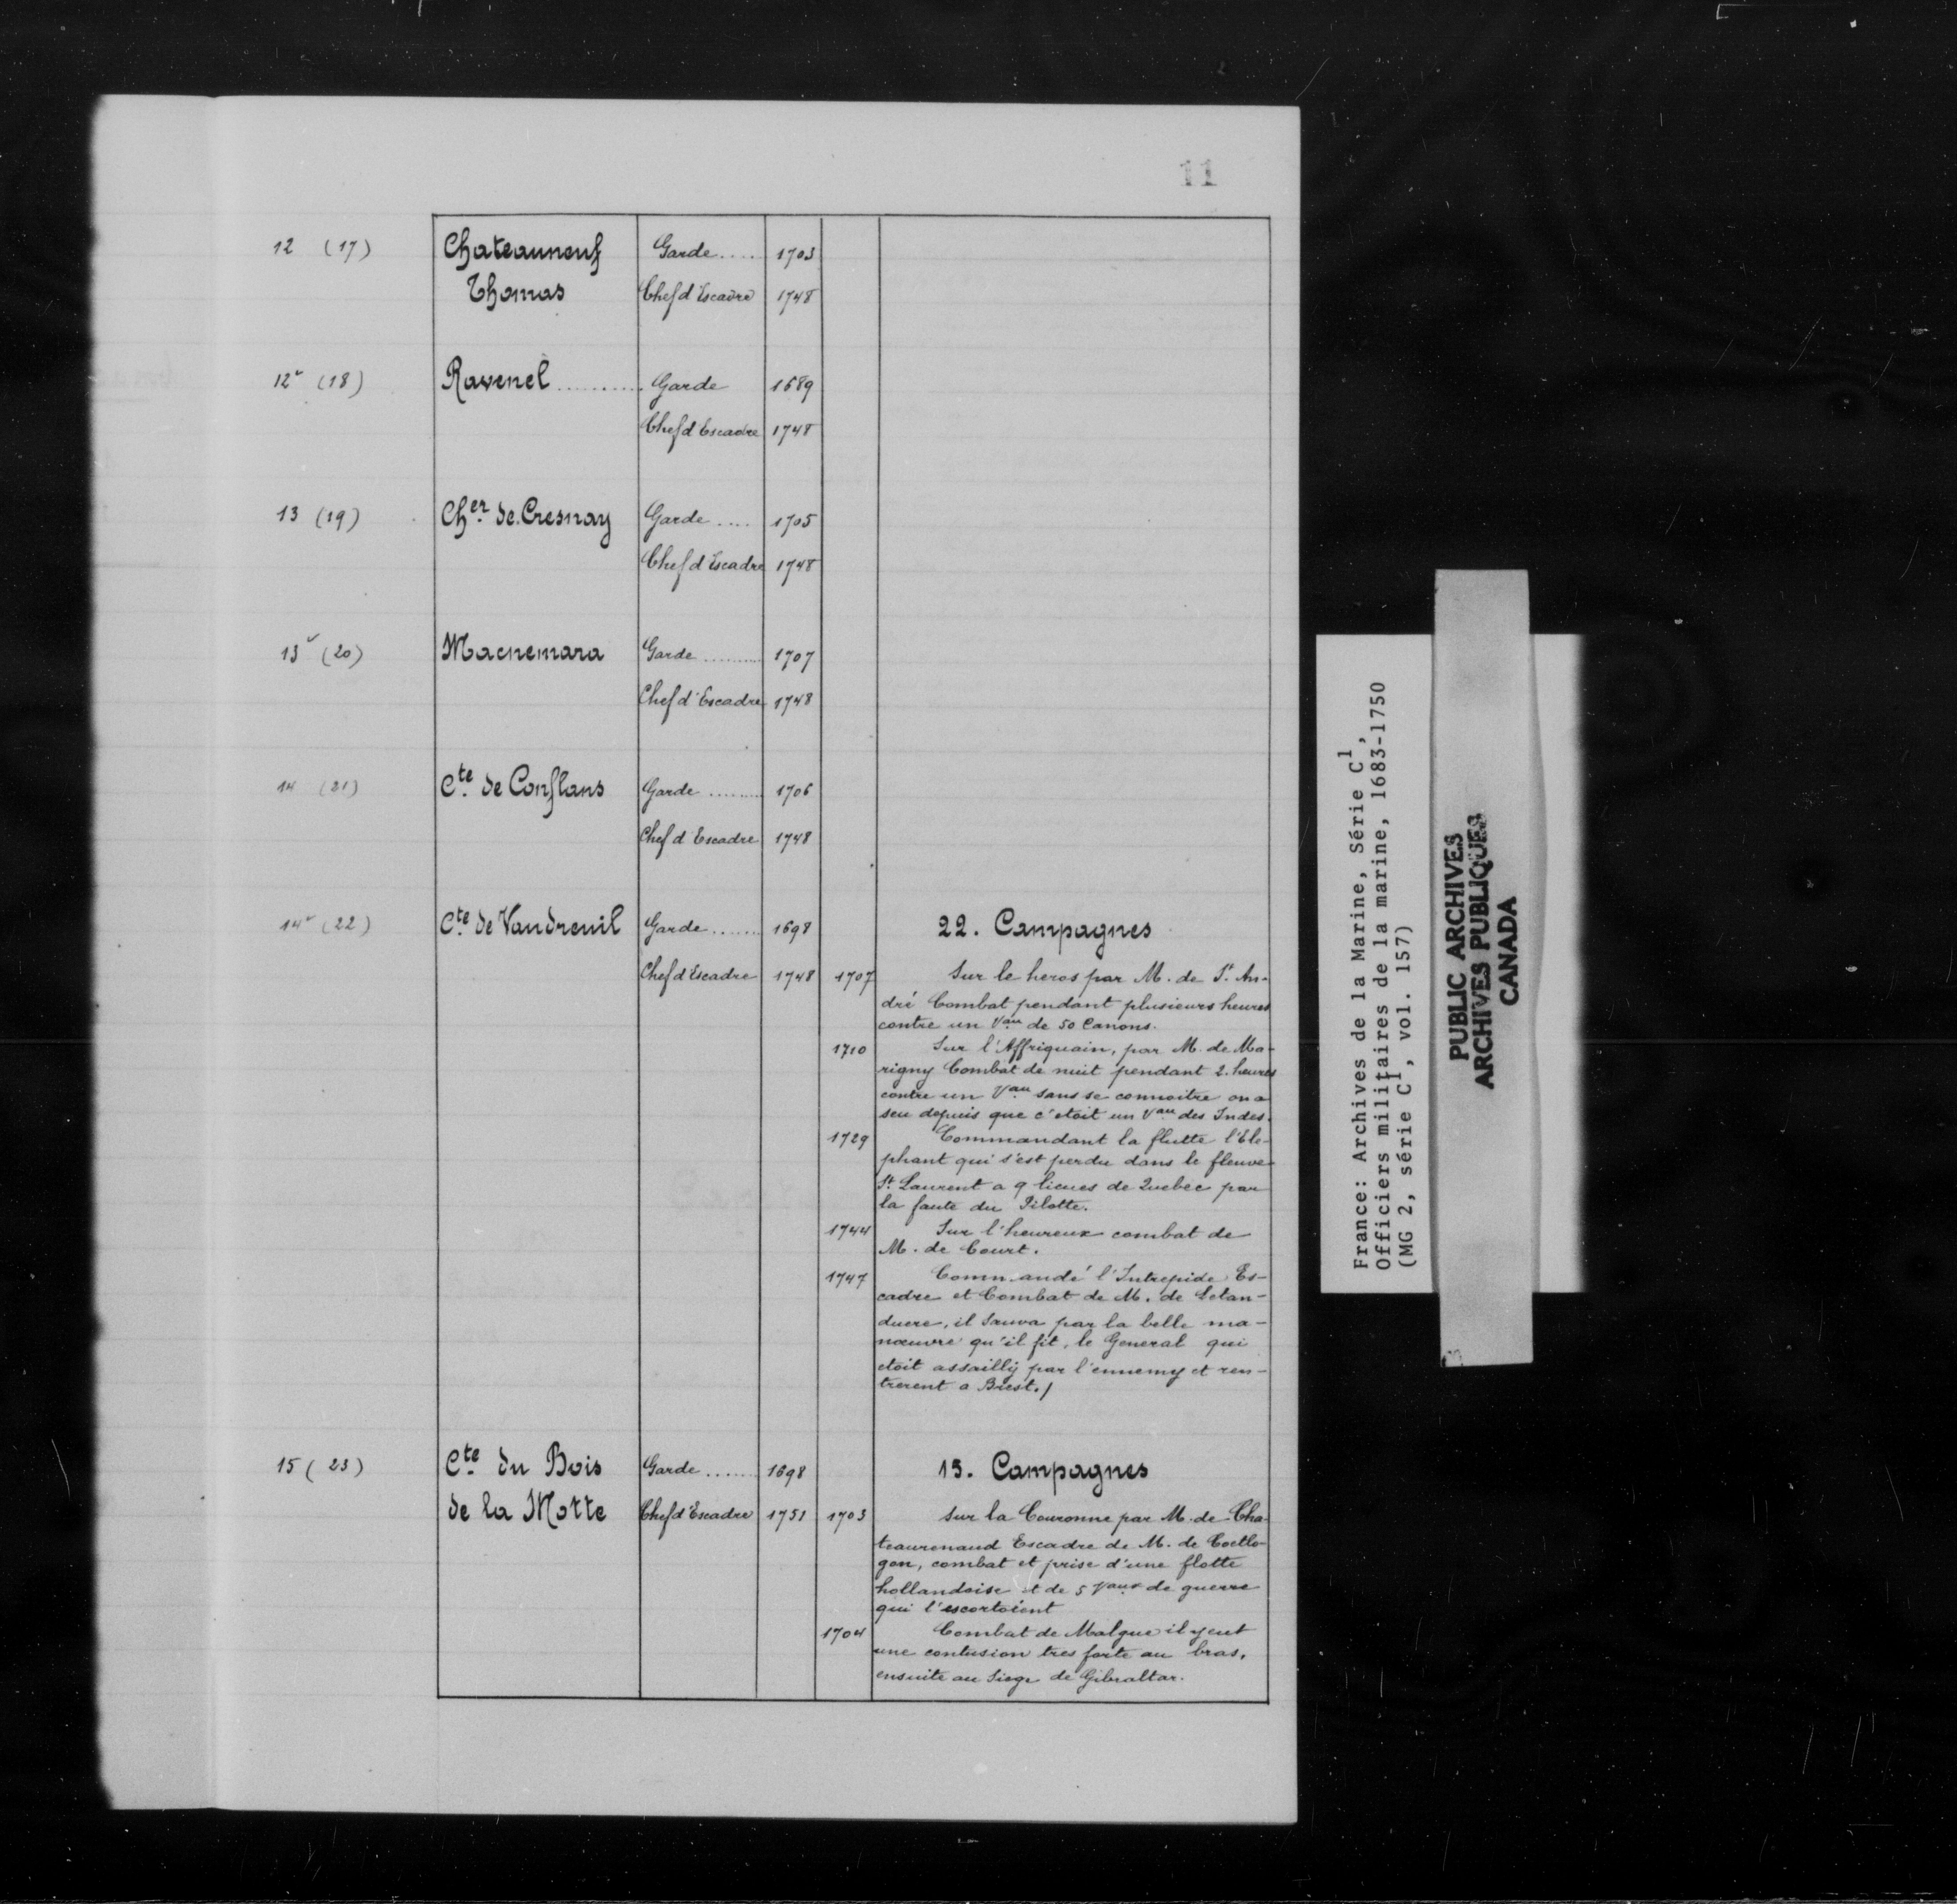 11
12 (17) Chateauneuf Garde.... 1703
Thomas Chef d'Escadre 1748
12v (18) Ravenel.......... Garde 1689
Chef d'Escadre 1748
13 (19) Cher. de Cresnay Garde.... 1705
Chef d'Escadre 1748
13v (20) Macnemara Garde.......... 1707
Chef d'Escadre 1748
14 (21) Cte. de Conflans Garde.......... 1706
Chef d'Escadre 1748
14v (22) Cte. de Vaudreuil Garde....... 1698 22. Campagnes
Chef d'Escadre 1748 1707 Sur le heros par M. de St. An-
dré Combat pendant plusieurs heures
contre un Vau de 50 Canons.
1710 Sur l'Affriquain, par M. de Ma-
rigny Combat de nuit pendant 2. heures
contre un Vau sans se connoitre on a
seu depuis que c'etoit un Vau des Indes.
1729 Commandant la flutte l'Ele-
phant qui s'est perdu dans le fleuve
St. Laurent a 9 lieues de Quebec par
la faute du Pilotte.
1744 Sur l'heureux combat de
M. de Court.
1747 Commandé l'Intrepide Es-
cadre et Combat de M. de Letan-
duere, il sauva par la belle ma-
nœuvre qu'il fit, le General qui
etoit assailly par l'ennemy et ren-
trerent a Brest./
15 (23) Cte. du Bois Garde....... 1698 15. Campagnes
de la Motte Chef d'Escadre 1751 1703 Sur la Couronne par M. de Cha-
teaurenaud Escadre de M. de Coetlo-
gon, combat et prise d'une flotte
hollandoise et de 5 Vaux de guerre
qui l'escortoient
1704 Combat de Malgue il y eut
une contusion tres forte au bras,
ensuite au Siege de Gibraltar.
France: Archives de la Marine, Série C1,
Officiers militaires de la marine, 1683-1750
(MG 2, série C1, vol. 157)
PUBLIC ARCHIVES
ARCHIVES PUBLIQUES
CANADA